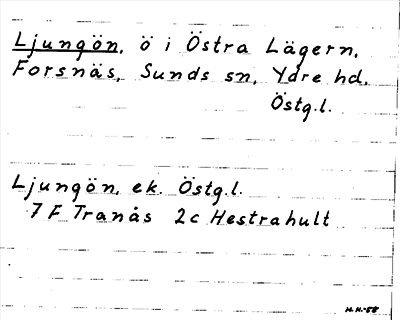 Ljungön, ö i Östra Lägern,
Forsnäs, Sunds sn, Ydre hd,
Östg.l.
Ljungön, ek. Östg.l.
7 F Tranås 2c Hestrahult
H.H.-58